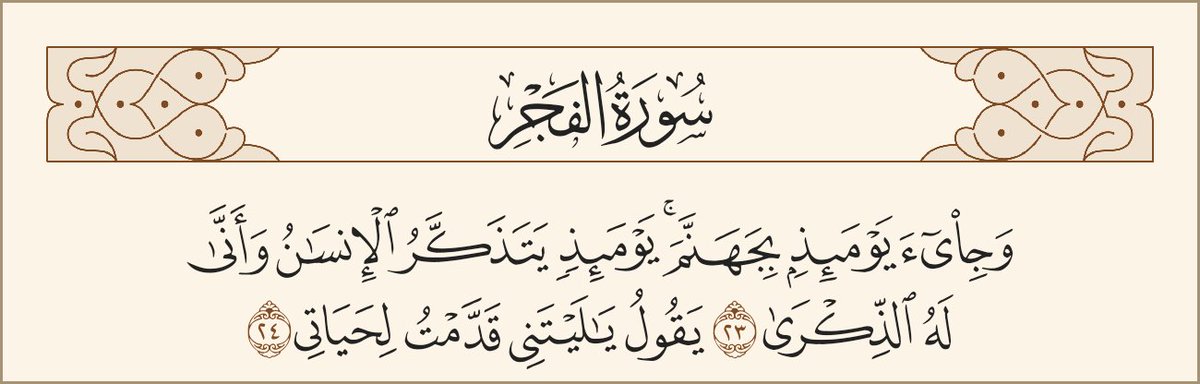 سُورَةُ الفَجْرِ
وَجِا۟ىٓءَ يَوْمَئِذِۭ بِجَهَنَّمَۚ يَوْمَئِذٖ يَتَذَكَّرُ ٱلْإِنسَٰنُ وَأَنَّىٰ
لَهُ ٱلذِّكْرَىٰ ٢٣ يَقُولُ يَٰلَيْتَنِي قَدَّمْتُ لِحَيَاتِي ٢٤